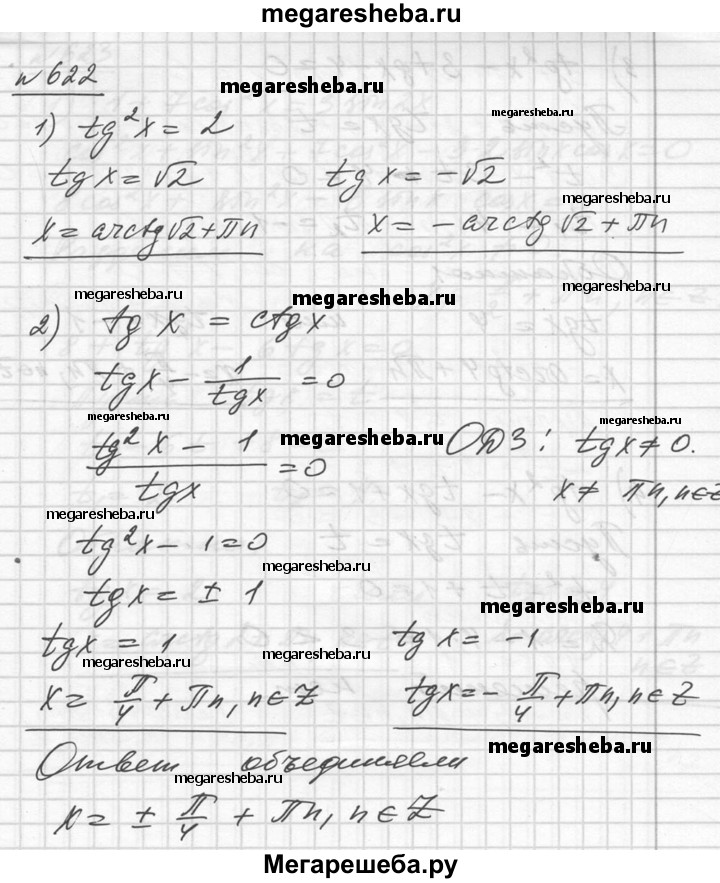 megaresheba.ru
№622
megaresheba.ru
1) tg²x = 2
megaresheba.ru
tgx = √2    tgx = -√2
megaresheba.ru
x = arctg√2 + πn    x = -arctg√2 + πn
megaresheba.ru megaresheba.ru megaresheba.ru
2) tgx = ctgx
tgx - 1/tgx = 0
megaresheba.ru megaresheba.ru megaresheba.ru
(tg²x - 1)/tgx = 0    ОДЗ: tgx ≠ 0.
x ≠ πn, n∈Z
megaresheba.ru
tg²x - 1 = 0
megaresheba.ru
tgx = ± 1
megaresheba.ru
tgx = 1    tgx = -1
megaresheba.ru megaresheba.ru
x = π/4 + πn, n∈Z    tgx = -π/4 + πn, n∈Z
megaresheba.ru
Ответ объединяем
megaresheba.ru
x = ± π/4 + πn, n∈Z
Мегарешеба.ру